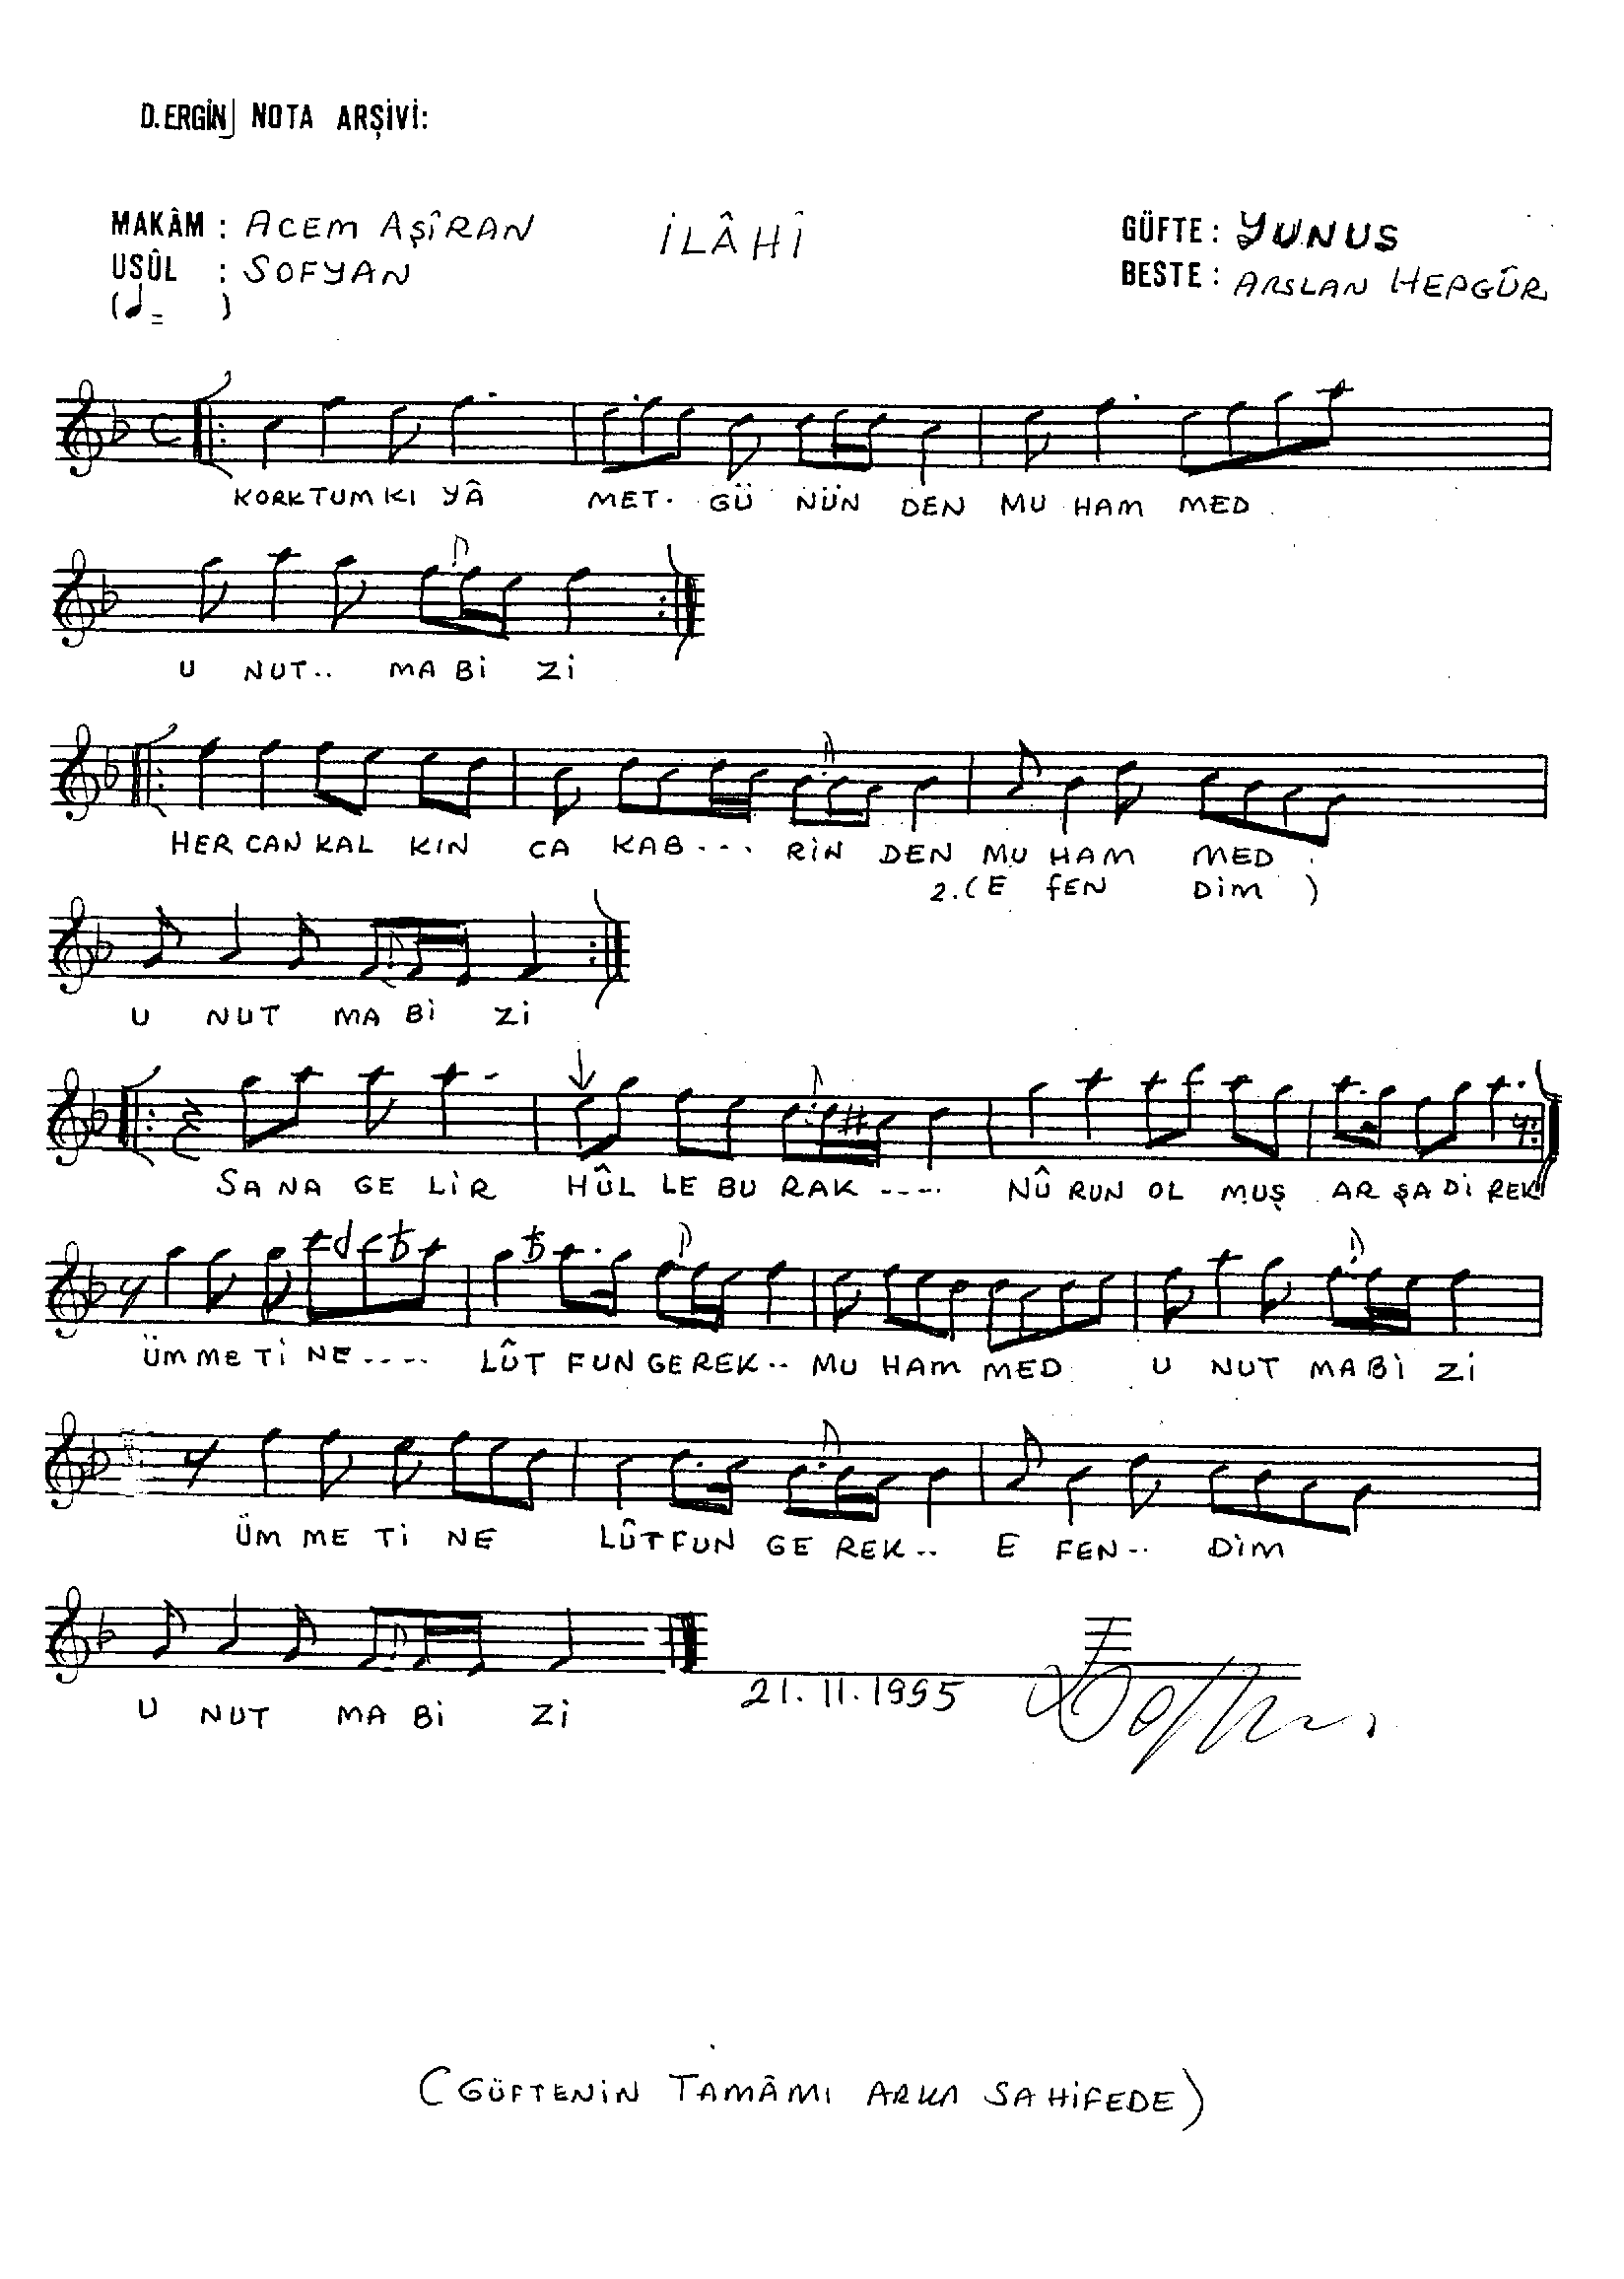 D.ERGİN NOTA ARŞİVİ:
MAKÂM : ACEM AŞÎRAN
İLÂHÎ
GÜFTE: YUNUS
USÛL : SOFYAN
BESTE: ARSLAN HEPGÜR
( = )
KORKTUM KI YÂ MET. GÜ NÜN DEN MU HAM MED.
U NUT.. MA Bİ Zİ
HER CAN KAL KIN CA KAB.... RİN DEN MU HAM MED.
2.(E FEN DİM)
U NUT MA Bİ Zİ
SA NA GE LİR HÛL LE BU RAK ---- NÛ RUN OL MUŞ AR ŞA Dİ REK
ÜM ME Tİ NE.... LÛT FUN GE REK.. MU HAM MED U NUT MA Bİ Zİ
ÜM ME Tİ NE LÛT FUN GE REK.. E FEN.. DİM
U NUT MA Bİ Zİ
21.11.1995
(GÜFTENİN TAMÂMI ARKA SAHİFEDE)